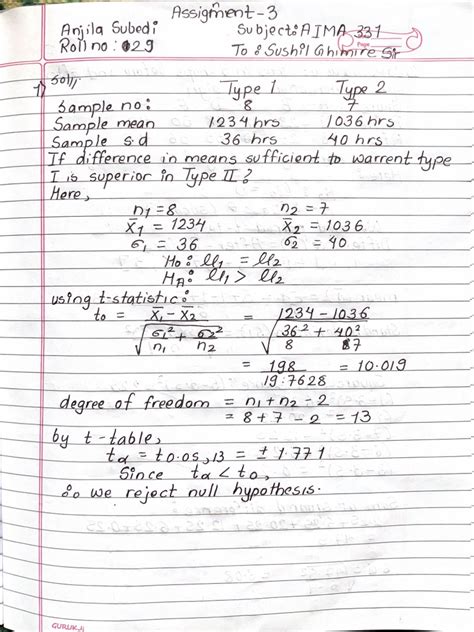 Assignment-3
Anjila Subedi
Subject: AIMA 331
Roll no: 029
To: Sushil Ghimire Sir
1) Soln,
Type 1 Type 2
Sample no: 8 7
Sample mean 1234 hrs 1036 hrs
Sample s.d 36 hrs 40 hrs
If difference in means sufficient to warrent type
I is superior in Type II?
Here,
n1 = 8 n2 = 7
X̄1 = 1234 X̄2 = 1036
σ1 = 36 σ2 = 40
H0: μ1 = μ2
HA: μ1 > μ2
using t-statistic:
t0 = (X̄1 - X̄2) / √(σ1²/n1 + σ2²/n2) = (1234 - 1036) / √(36²/8 + 40²/7)
= 198 / 19.7628 = 10.019
degree of freedom = n1 + n2 - 2
= 8 + 7 - 2 = 13
by t-table,
tα = t0.05, 13 = ± 1.771
Since tα < t0,
∴ we reject null hypothesis.